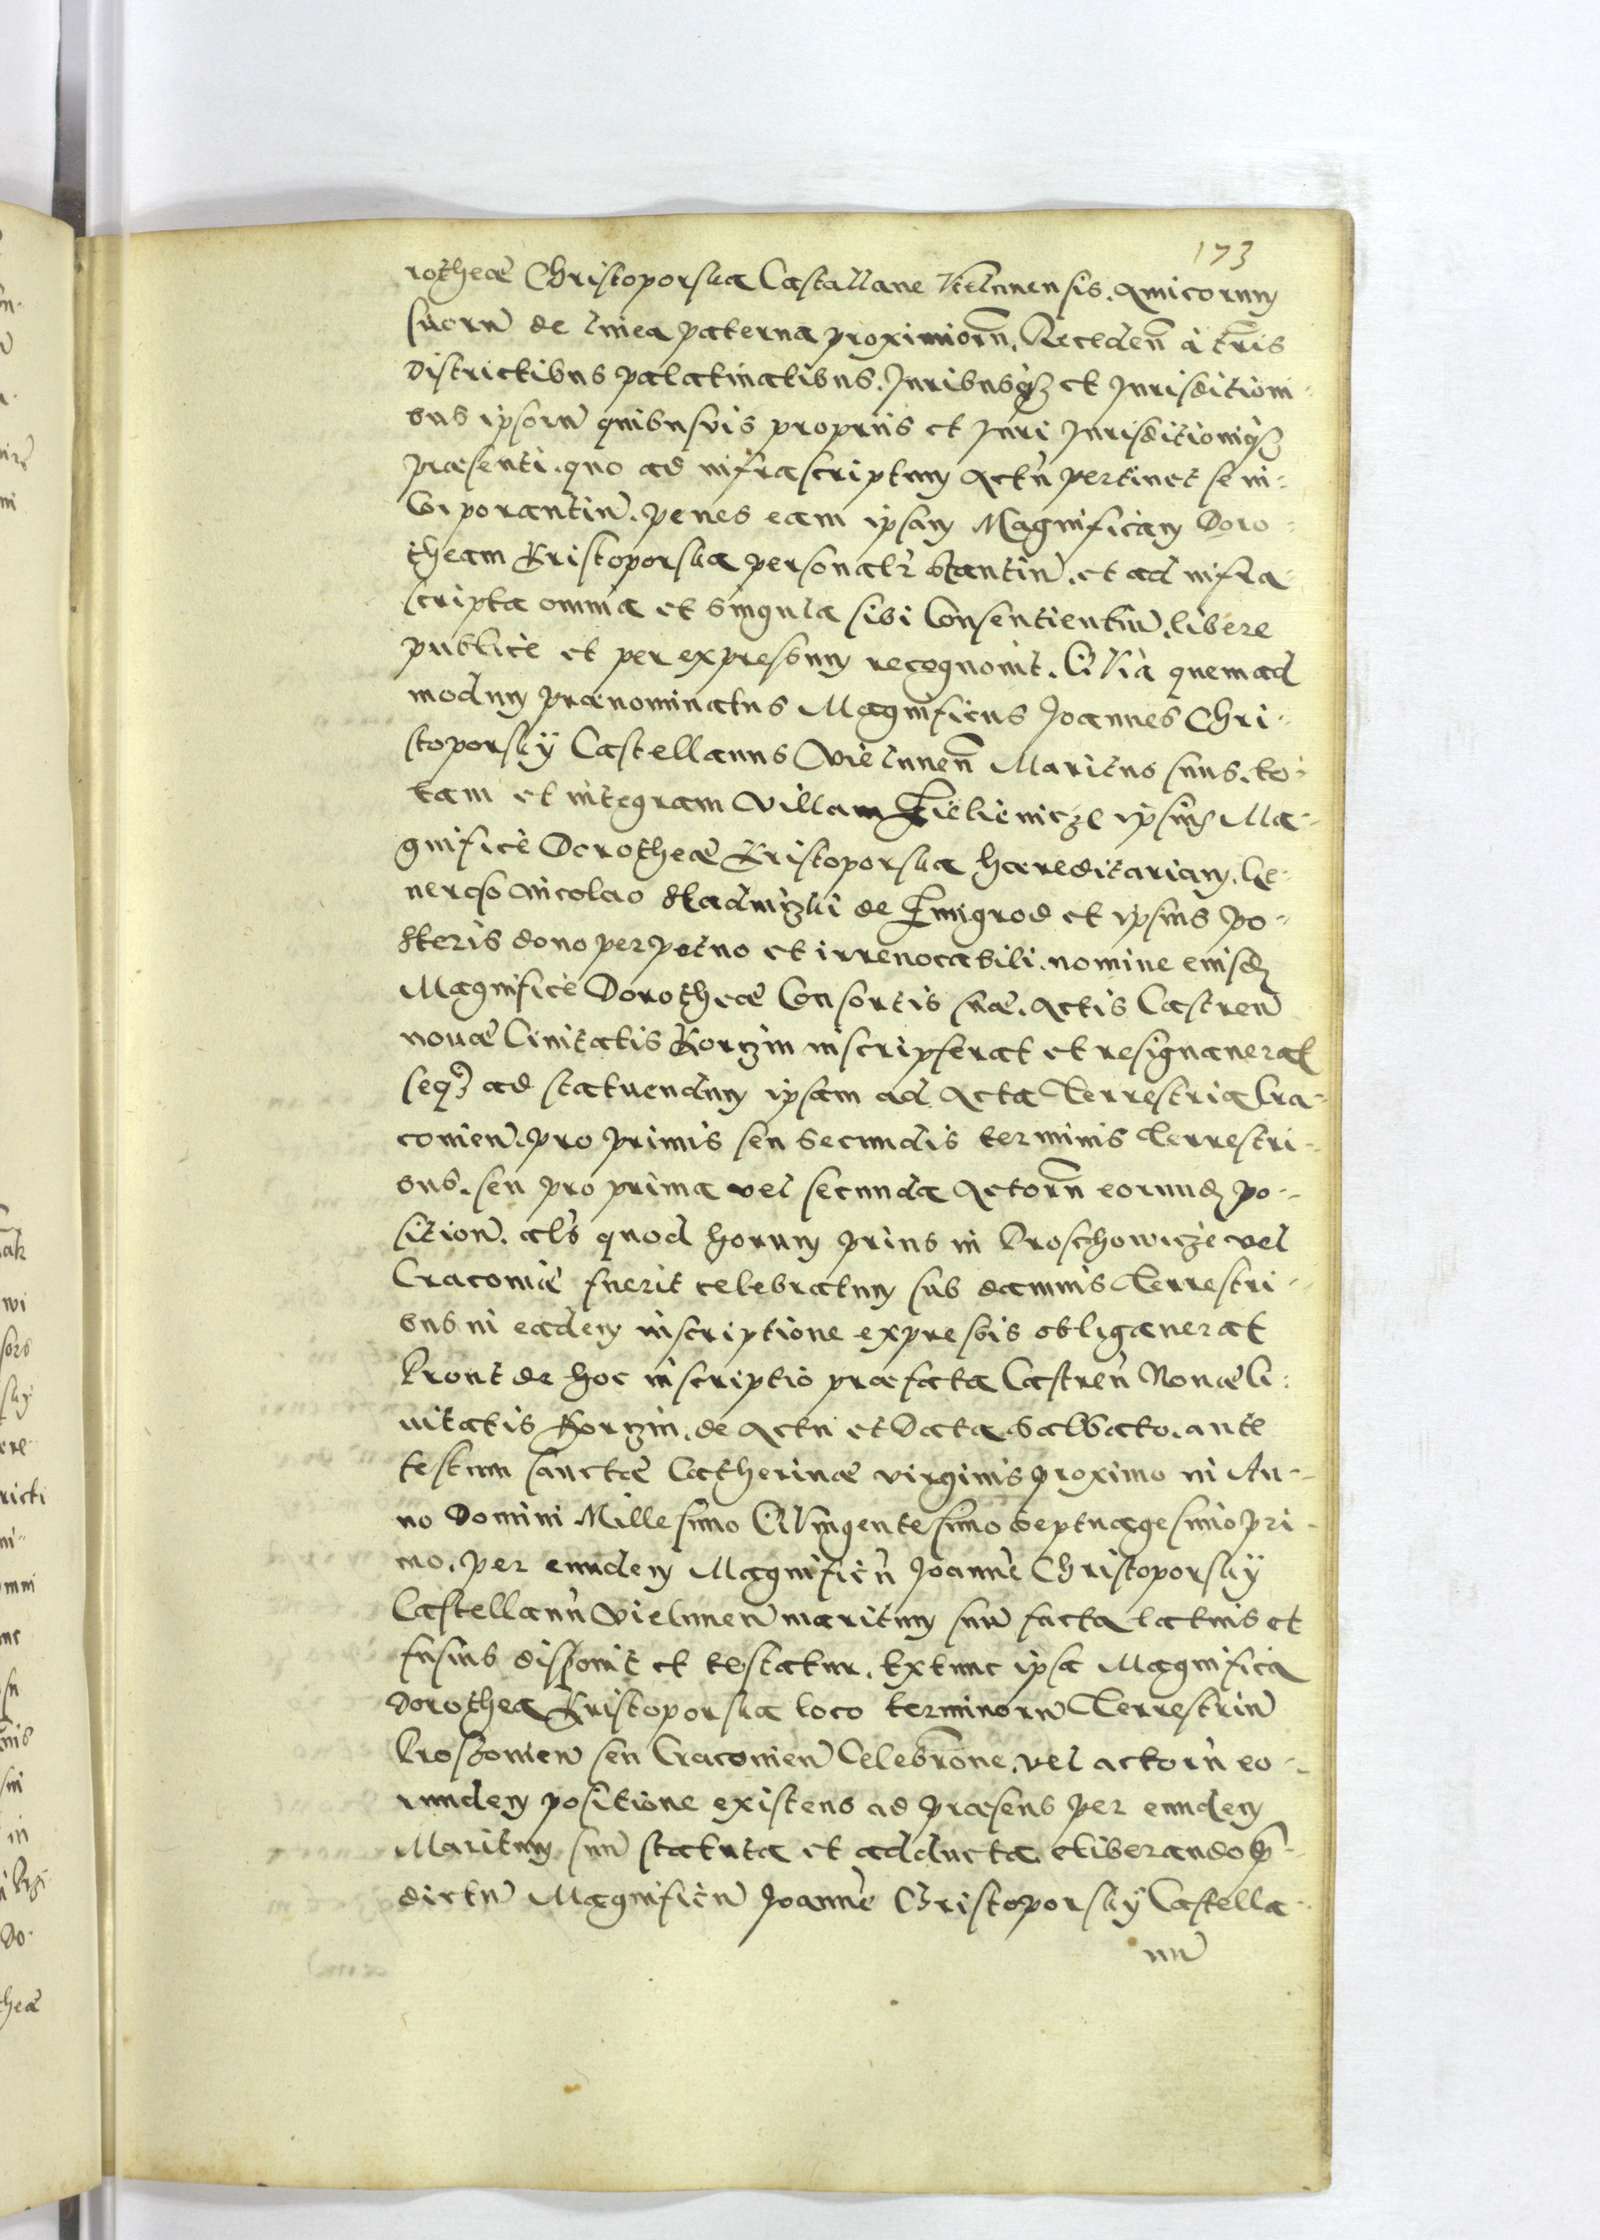 173
rotheæ Christoporska Castallane Vielunensis. Amicorum
suorũ de linea paterna proximiorũ. Recedeñ à t̃ris
districtibus palatinatibus. Juribusq3 et Jurisditioni-
bus ipsorũ quibusvis propriis et Juri Jurisditioniq3
præsenti. quo ad infrascriptum Actũ pertinet se in-
corporantiũ. penes eam ipsam Magnificam Doro-
theam Kristoporska personalr̃ stantiũ. et ad infra-
scripta omnia et singula sibi Consentientiũ, libere
publicè et per expressum recognovit. Quià quemad
modum prænominatus Magnificus Joannes Chri-
stoporsky Castellanus Vieluneñ Maritus suus. to-
tam et integram Villam Zielienicze ipsius Ma-
gnificè Dorotheæ Kristoporska hæreditariam. Ge-
neroso Nicolao Stadnizki de Zmigrod et ipsius po-
steris dono perpetuo et irrevocabili. nomine eiusdẽ
Magnificè Dorotheæ Consortis suæ. Actis Castreñ
nouæ Ciuitatis Korczin inscripserat et resignauerat
seq3 ad statuendum ipsam ad Acta Terrestria Cra-
covieñ. pro primis seu secundis terminis Terrestri-
bus. seu pro prima vel secunda Actorũ eorundẽ po-
sitioñ. als quod horum prius in Proschowicze vel
Cracoviæ fuerit celebratum sub damnis Terrestri-
bus in eadem inscriptione expressis obligauerat
Prout de hoc inscriptio præfata Castreñ Nouæ Ci-
uitatis Korczin. de Actu et Data Sabbato. ante
festum sanctæ Catherinæ virginis proximo in An-
no Domini Millesimo Quingentesimo Septuagesimo pri-
mo. per eundem Magnificũ Joannẽ Christoporsky
Castellanũ Vieluneñ maritum suũ facta latius et
fusius disponit et testatur. Extunc ipsa Magnifica
Dorothea Kristoporska loco terminorũ Terrestriũ
Proszovieñ seu Cracovieñ Celebrõne. vel actorũ eo-
rundem positione existens ad præsens per eundem
Maritum suũ statuta et adducta. eliberando
dictũ Magnificũ Joannẽ Christoporsky Castella-
nũ